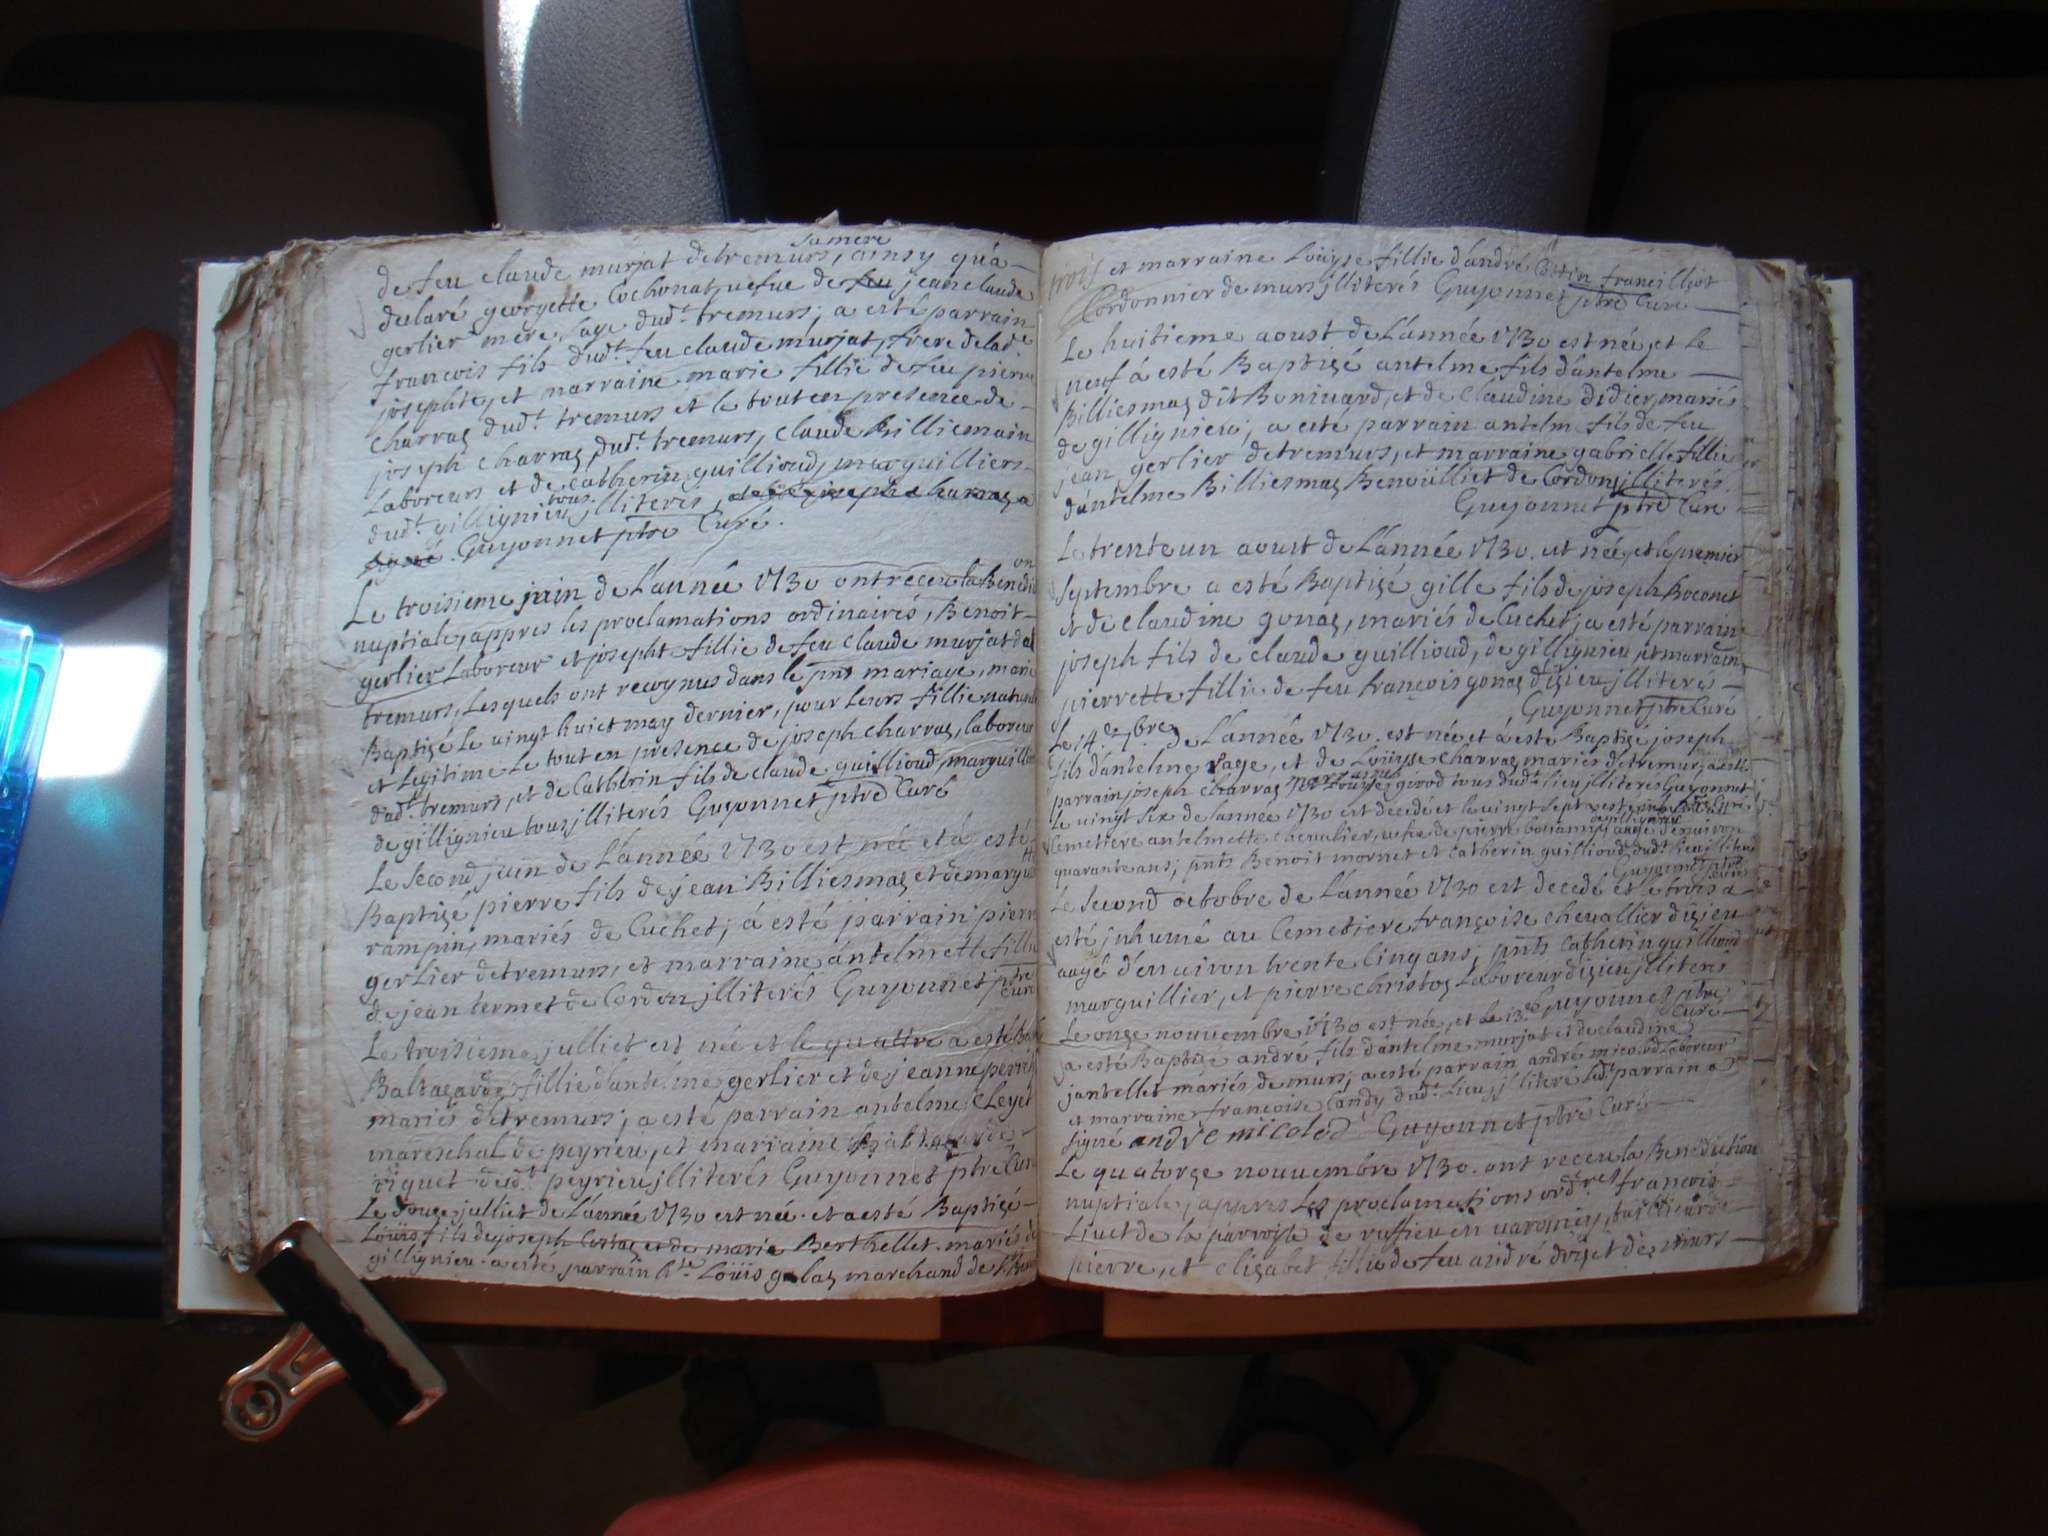 sa mere
de feu claude murjat de tremurs, ainsy qu'a
declaré georgette Cochonat, vefue de feu jean claude
gerlier mere, sage dudt. tremurs; a esté parrain
francois fils dudt. feu claude murjat, frere de lad.
josephte, et marraine marie fillie de feu pierre
charraz dudt. tremurs et le tout en presence de
joseph charraz dudt. tremurs, claude Billiemain
Laboreurs et de catherin guillioud, marguilliers
dudt. gillignieu tous jlliterés,
signé Guyonnet ptre Curé.
Le troisieme juin de L'année 1730 ont receu la Benedicti on
nuptiale, appres les proclamations ordinaires, Benoit
gerlier Laboreur et josepht fillie de feu Claude murjat de
tremurs, Lesquels ont recognus dans le pnt mariage, marie
Baptizé Le vingt huict may dernier, pour Leurs fillie naturelle
et Legitime Le tout en presence de joseph charraz, laboreur
dudt. tremurs, et de Catherin fils de claude guillioud, marguillier
de gillignieu tous jlliterés Guyonnet ptre Curé
Le second juin de L'année 1730 est née et a esté
Baptizé pierre fils de jean Billiesmaz et de margte
rampin, mariés de Cuchet; a esté parrain pierre
gerlier de tremurs, et marraine antelmette fillie
de jean termet de Cordon jlliterés Guyonnet ptre Curé
Le troisieme julliet est née et le quattre a esté Bap
Baltazarde fillie d'antelme gerlier et de jeanne
mariés de tremurs; a esté parrain antelme Cleyet
mareschal de peyrieu, et marraine Baltazarde
riguet dudt. peyrieu jlliterés Guyonnet ptre Curé
Le douze julliet de L'année 1730 est née et a esté Baptizé
Loüis fils de joseph et de marie Berthellet mariés de
gillignieu a esté parrain Loüis galaz marchand de
trois et marraine Loüyse fillie d'andré Cottin francilliot
Cordonnier de murs jlliterés Guyonnet ptre Curé
Le huitieme aoust de L'année 1730 est née, et Le
neuf a esté Baptizé antelme fils d'antelme
Billiesmaz dit Bonivard, et de Claudine didier, mariés
de gillignieu; a esté parrain antelm fils de feu
jean gerlier de tremurs, et marraine gabrielle fillie
d'antelme Billiesmaz Benoüilliet de Cordon jlliterés.
Guyonnet ptre Curé
Le trente un aoust de L'année 1730. est née, et le premier
septembre a esté Baptizé gille fils de joseph Boconet
et de claudine gonaz, mariés de Cuchet; a esté parrain
joseph fils de claude guillioud, de gillignieu et marraine
pierrette fillie de feu françois gonaz d'izieu jlliterés
Guyonnet ptre Curé
Le 14e. 7bre. de L'année 1730. est née et a esté Baptizé joseph
fils d'antelme sage, et de Loüyse charraz mariés de tremurs, a esté
parrain joseph charraz marraine Loüyse girod tous dudt. lieu jlliterés Guyonnet
Le vingt six de Lannée 1730 est decedé et le vingt sept
Cemettere antelmette chevalier, de pierre aagé d'environ
quarante ans; pnts Benoit mornet et Catherin guillioud dudt. lieu jlliterés
Guyonnet ptre Curé
Le second octobre de L'année 1730 est decedé et le trois a
esté jnhumé au Cemetiere françoise chevallier d'izieu
aagé d'environ trente Cinq ans; pnts Catherin guillioud
marguillier, et pierre Christoz Laboreur d'izieu jlliterés
Guyonnet ptre Curé
Le onze nouvembre 1730 est née, et Le 13e.
a esté Baptizé andré fils d'antelme murjat et de claudine
jantellet mariés de murs; a esté parrain andré micolod Laboreur
et marraine francoise Candy dudt. Lieu jlliteré Ledt parrain a
signé andré micolod Guyonnet ptre Curé
Le quatorze nouvembre 1730. ont receu la Benediction
nuptiale, appres Les proclamations ordres francois
Livet de la parroisse de ruffieu en varomey,
pierre, et elizabet fillie de feu andré de murs